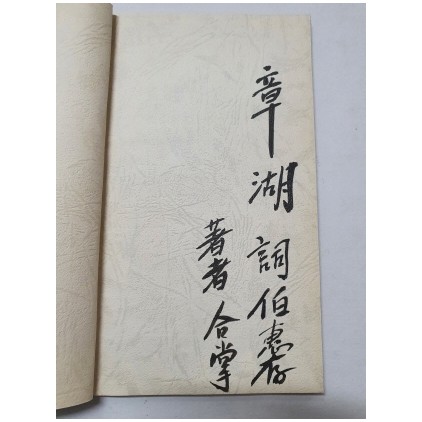 章湖詞伯惠存
著者合掌